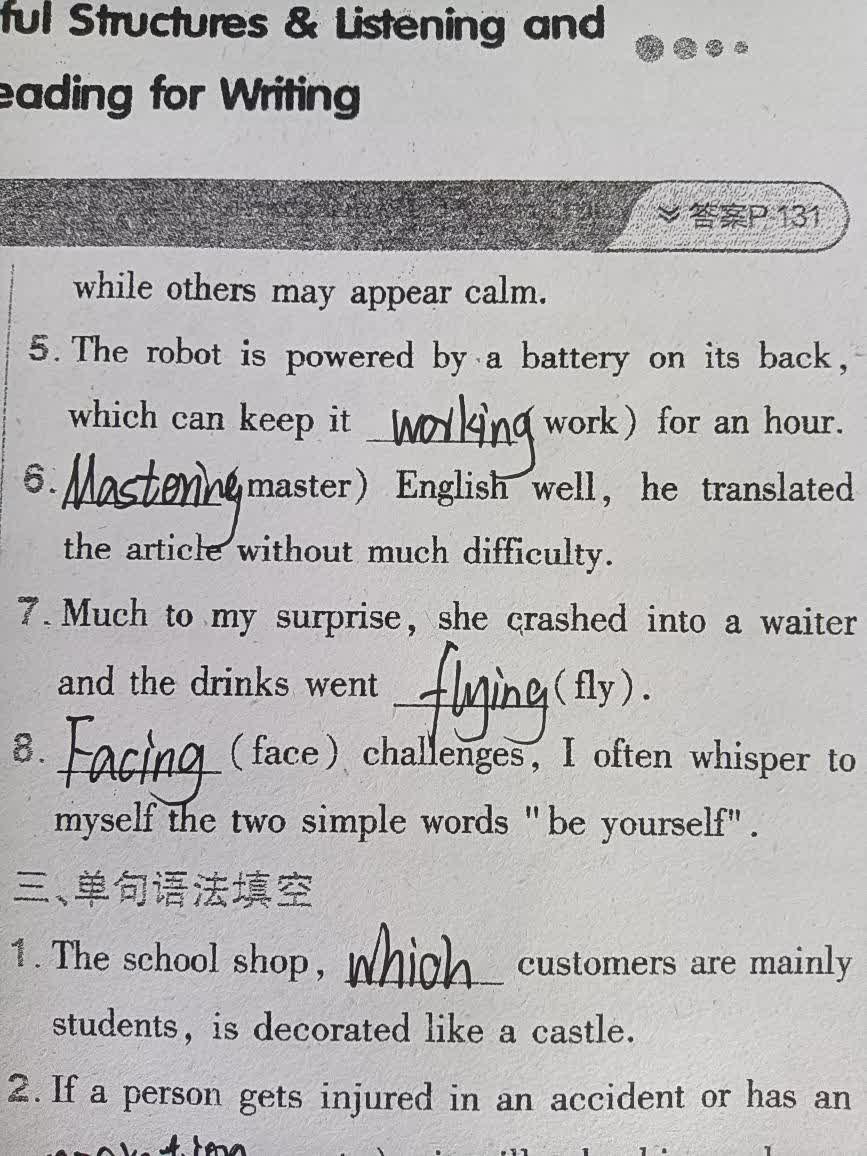 ful Structures & Listening and
eading for Writing
答案P.131
while others may appear calm.
5. The robot is powered by a battery on its back,
which can keep it working work) for an hour.
6. Mastering master) English well, he translated
the article without much difficulty.
7. Much to my surprise, she crashed into a waiter
and the drinks went flying (fly).
8. Facing (face) challenges, I often whisper to
myself the two simple words "be yourself".
三、单句语法填空
1. The school shop, which customers are mainly
students, is decorated like a castle.
2. If a person gets injured in an accident or has an